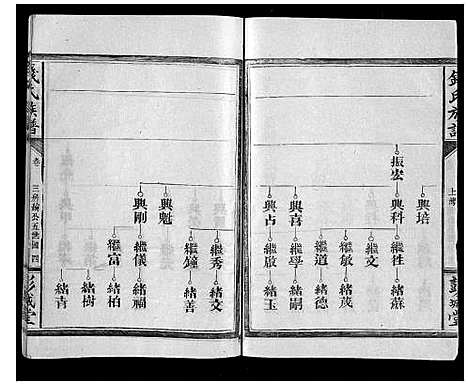 錢氏族譜
上
彭城堂
振宏
興培
興科
興喜
興占
興魁
興剛
繼文
繼敏
繼道
繼學
繼啟
繼秀
繼鐘
繼儀
繼富
緒蘇
緒茂
緒德
緒嗣
緒玉
緒文
緒善
緒福
緒柏
緒樹
緒青
錢氏族譜
卷
三房 公五世圖 四
彭城堂